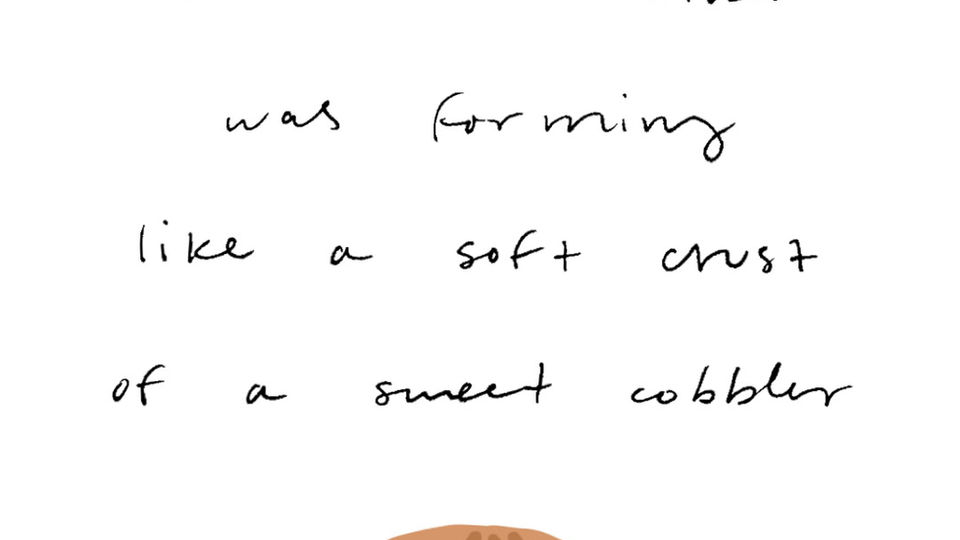 was forming
like a soft crust
of a sweet cobbler